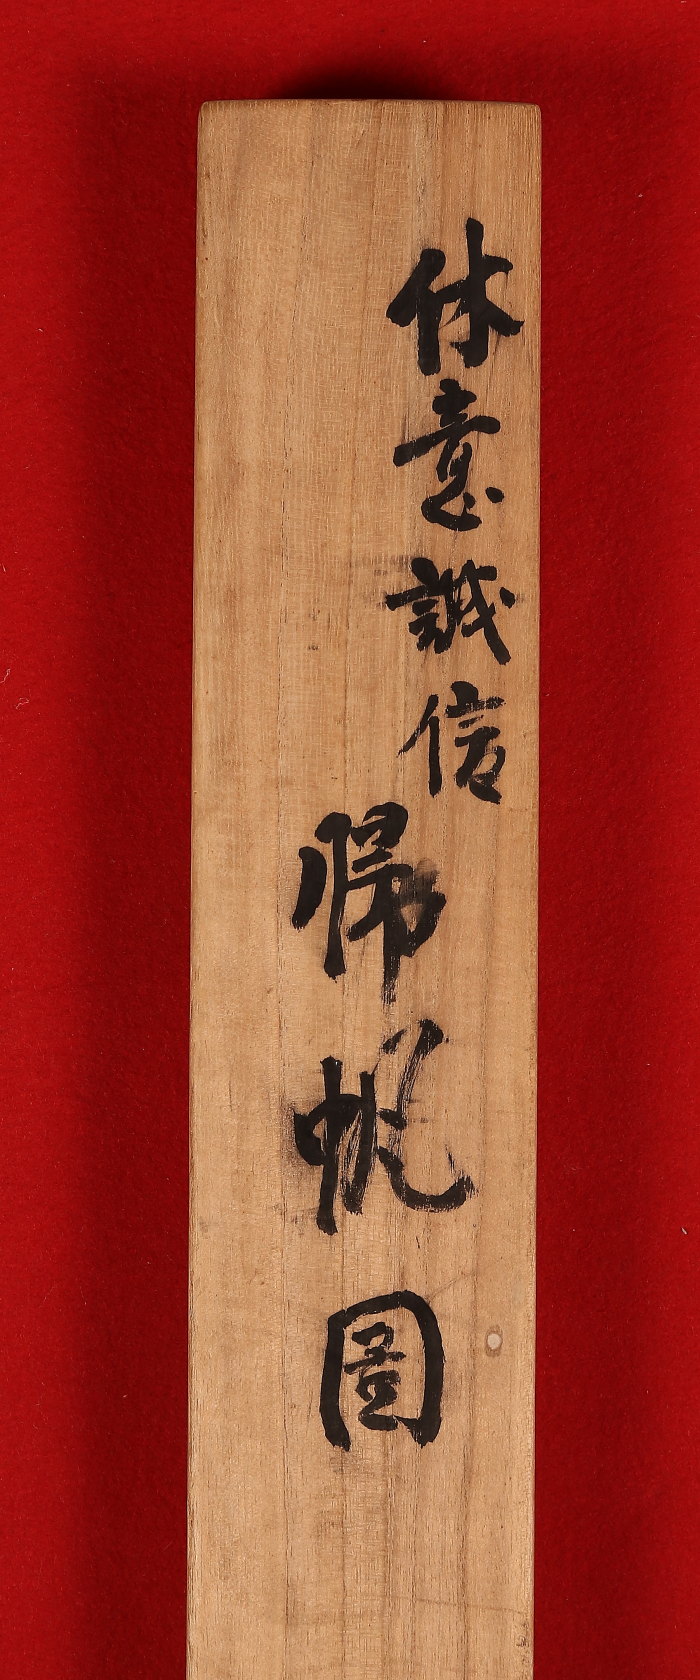 休意誠信
帰帆圖